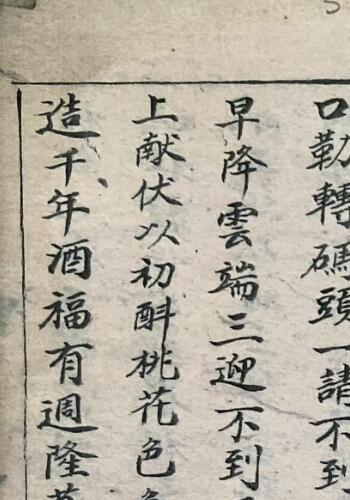 口勒轉碼頭一請不到
早降雲端三迎不到
上献伏以初酙桃花色
造千年酒福有週隆